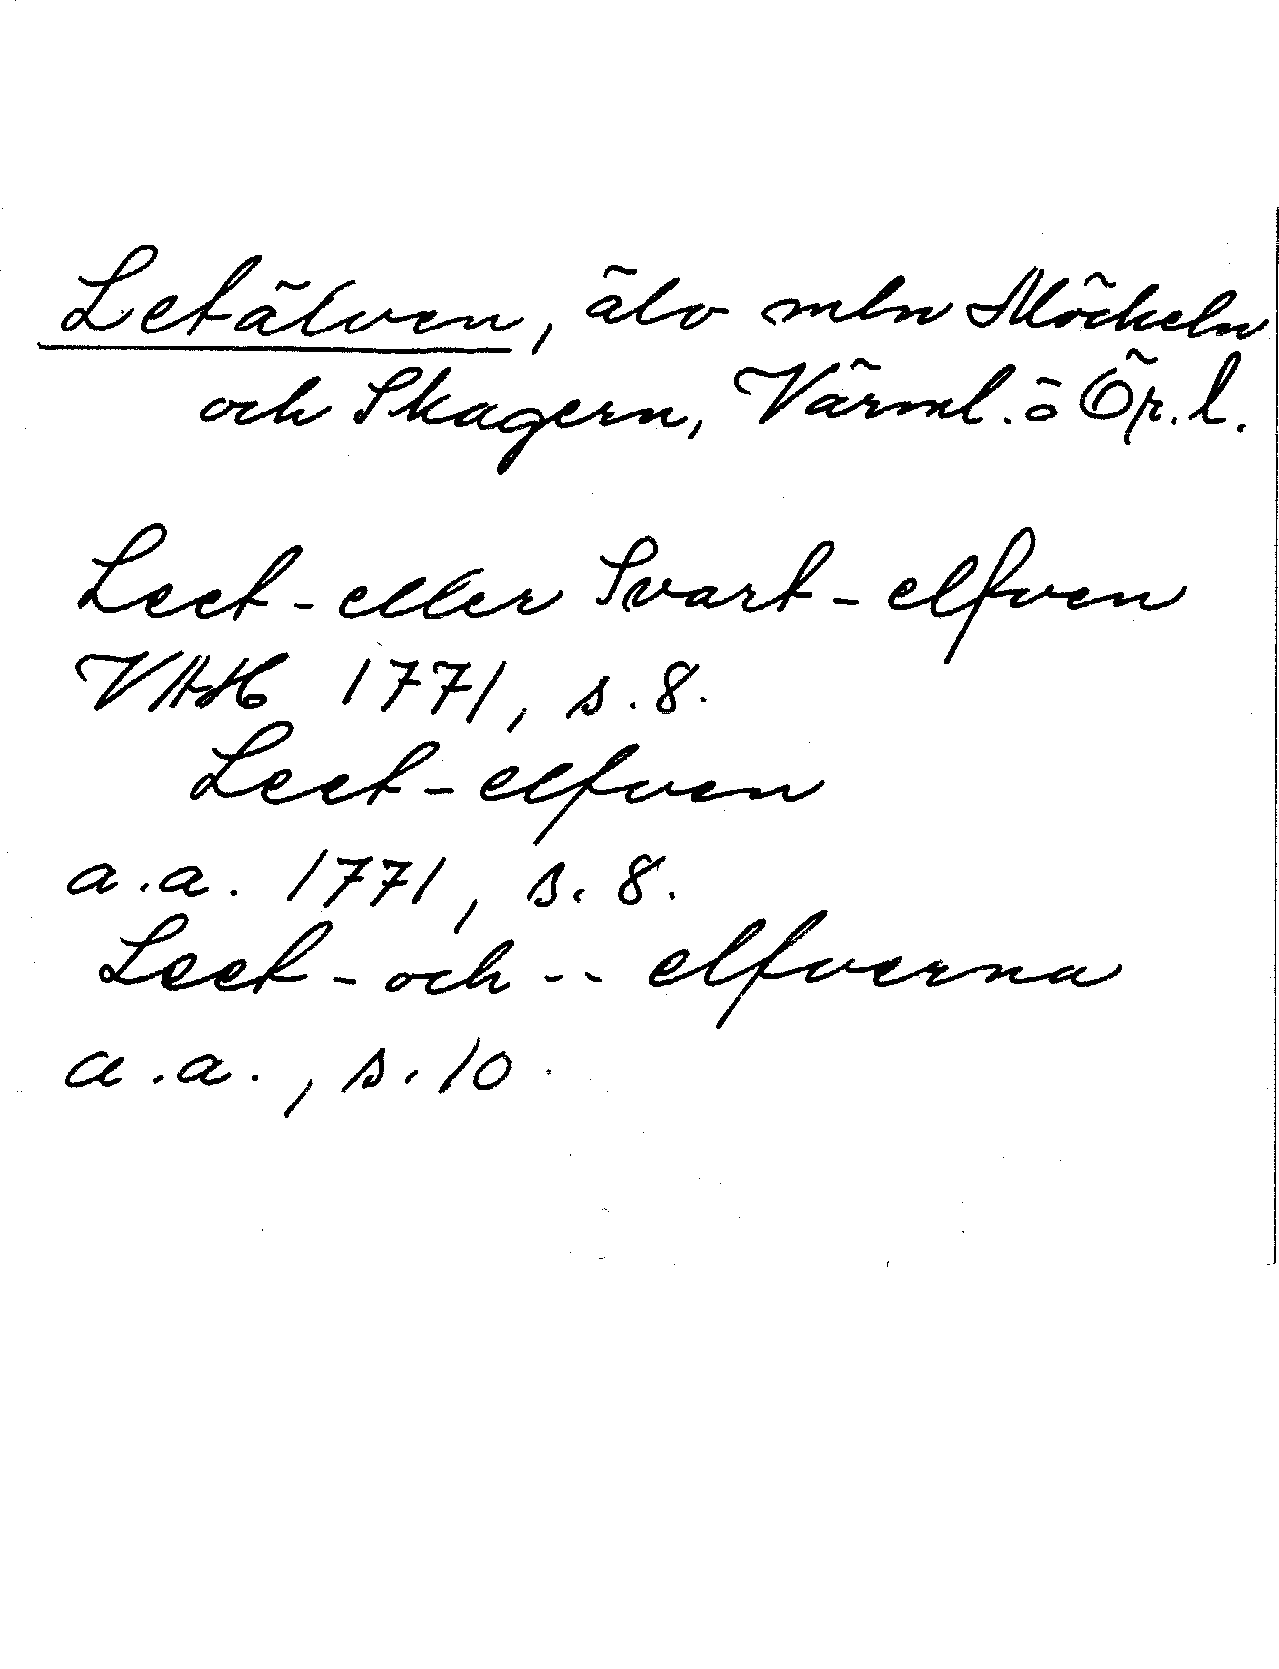 Letälven, älv mln Möckeln
och Skagern, Värml. o Ör. l.
Leet-eller Svart-elfven
VAH 1771, s. 8.
Leet-elfven
a.a. 1771, s. 8.
Leet-och -- elfverna
a.a., s. 10